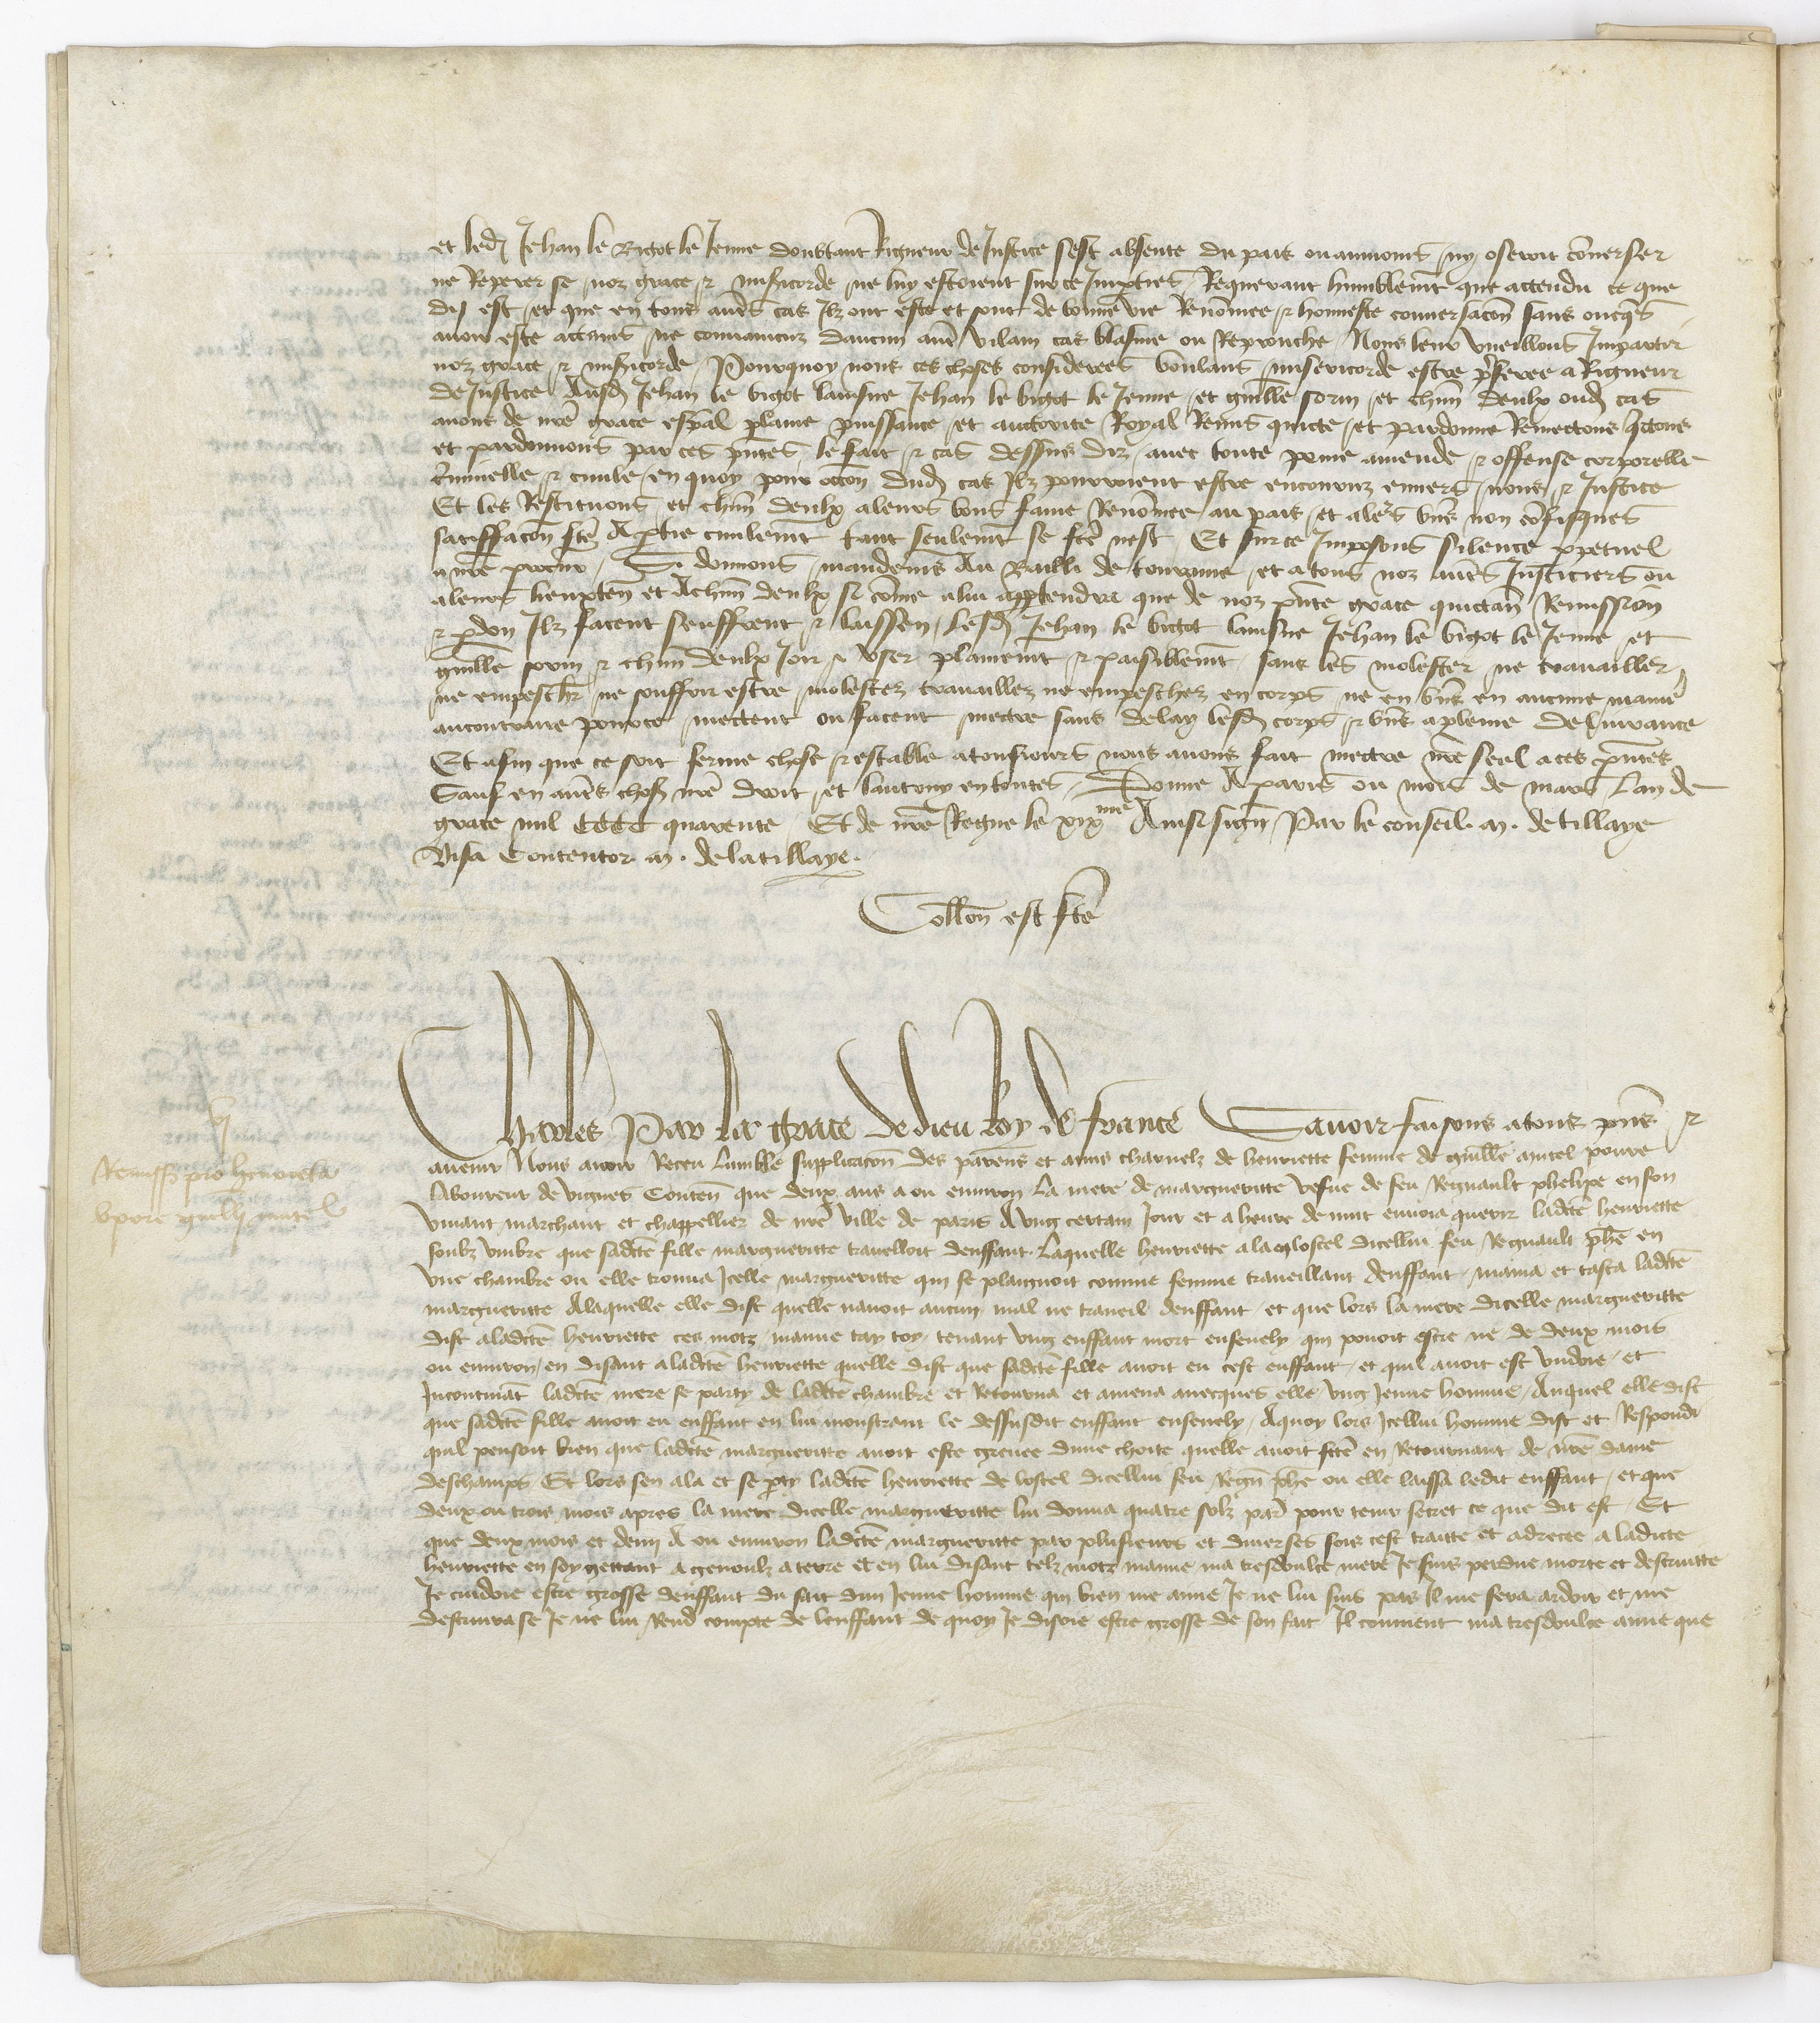 et led Jehan le Bigot le Jeune doubtant Rigueur de Justice sest absente du pais ou aumoins ny oseroit conuerser
ne Reperer se noz grace & misicorde ne luy estoient surce Imparties Requerant humblemt que actendu ce que
dit est et que en tous aues cas Ilz ont este et sont de bonne vie Renommee & honneste conuersacon sans oncqs
auoir este actains ne conuaincuz daucun aue vilain cas blasme ou Reprouche Nous leur vueillons Impartir
noz grace & misicorde Pourquoy nous ces choses considerees voulans misericorde estre pferee a Rigueur
de Justice Ausd Jehan le bigot laisne Jehan le bigot le Jeune et guille sorin et chun deulx oud cas
auons de nre grace espal plaine puissance et auctorite Royal Remis quicte et pardonne Remectons qctons
et pardonnons par ces pntes le fait & cas dessus diz auec toute peine amende & offense corporelle
criminelle & ciuile en quoy pour occon dud cas Ilz pourroient estre encouruz enuers nous & Justice
Et les Restituons et chun deulx aleurs bons fame Renommee au pais et aleurs biens non confisques
satisffacon fce A ptie ciuilemt tant seulemt se fce nest Et surce Imposons silence ppetuel
a nre procur Si donnons mandemt Au Bailli de touraine et a tous noz aues Justiciers ou
aleurs lieuxten et Achun deulx si come alui apptendra que de noz pnte grace quictan Remission
& pdon Ilz facent seuffrent & laissen lesd Jehan le bigot laisne Jehan le bigot le Jeune et
guille sorin & chun deulx Joir & vser plainemt & paisiblemt sans les molester ne trauailler
ne empescher ne souffrir estre molestez trauaillez ne empeschez en corps ne en biens en aucune manie
aucontraire pource mectent ou facent mectre sans delay lesd corps & biens apleine deliurance
Et afin que ce soit ferme chose & estable atousiours nous auons fait mectre nre seel aces pntes
Sauf en aues choses nre droit et lautruy en toutes Donne A paris ou mois de mars Lan de
grace mil CCCC quarente Et de nre Regne le xixme Ainsi sign Par le conseil. M. de tillaye
Visa Contentor M. delatillaye.
Collon est fce
Charles Par La grace de dieu Roy de france Sauoir faisons atous pns &
auenir Nous auoir Receu lumble supplicacon des parens et amis charnelz de henriette femme de guille mutel poure
laboureur de vignes Conten que deux ans a ou enuiron La mere de margueritte vefue de feu Regnault phelipe en son
viuant marchant et chappellier de nre ville de paris A vng certain Jour et a heure de nuit enuoia querir ladcte henriette
soubz vmbre que sadcte fille margueritte trauelloit denffant. Laquelle henriette ala en lostel dicellui feu Regnault phe en
vne chambre ou elle trouua Icelle margueritte qui se plaignoit comme femme traueillant denffant mania et tasta ladcte
margueritte Alaquelle elle dist quelle nauoit aucun mal ne traueil denffant et que lors la mere dicelle margueritte
dist aladcte henriette ces motz mamie tay toy tenant vng enffant mort enseuely qui pouoit estre ne de deux mois
ou enuiron en disant aladcte henriette quelle dist que sadcte fille auoit eu cest enffant et quil auoit est vndoie et
Incontinat ladcte mere se party de ladcte chambre et Retourna et amena auecques elle vng Jeune homme Auquel elle dist
que sadcte fille auoit eu enffant en lui monstrant le dessusdit enffant enseuely Aquoy lors Icellui homme dist et Respondi
quil pensoit bien que ladcte margueritte auoit este greuee dune choite quelle auoit fcte en Retournant de nre dame
deschamps Et lors sen ala et se pty ladcte henriette de lostel dicellui feu Regn phe ou elle laissa ledit enffant et que
deux ou trois mois apres la mere dicelle margueritte lui donna quatre solz par pour tenir secret ce que dit est Et
que deux mois et demi A ou enuiron ladcte margueritte par plusieurs et diuerses fois cest traitte et adrecee a ladicte
henriette en soy gettant a genoulz a terre et en lui disant telz motz mamie ma tresdoulce mere Je suis perdue morte et destruitte
Je cuidoie estre grosse denffant du fait dun Jeune homme qui bien me aime Je ne lui suis pas Il me fera ardoir et me
destruira se Je ne lui Rend compte de lenffant de quoy Je disoie estre grosse de son fait Il conuient ma tresdoulce amie que
Remiss pro henrieta
vxore guillj mutel